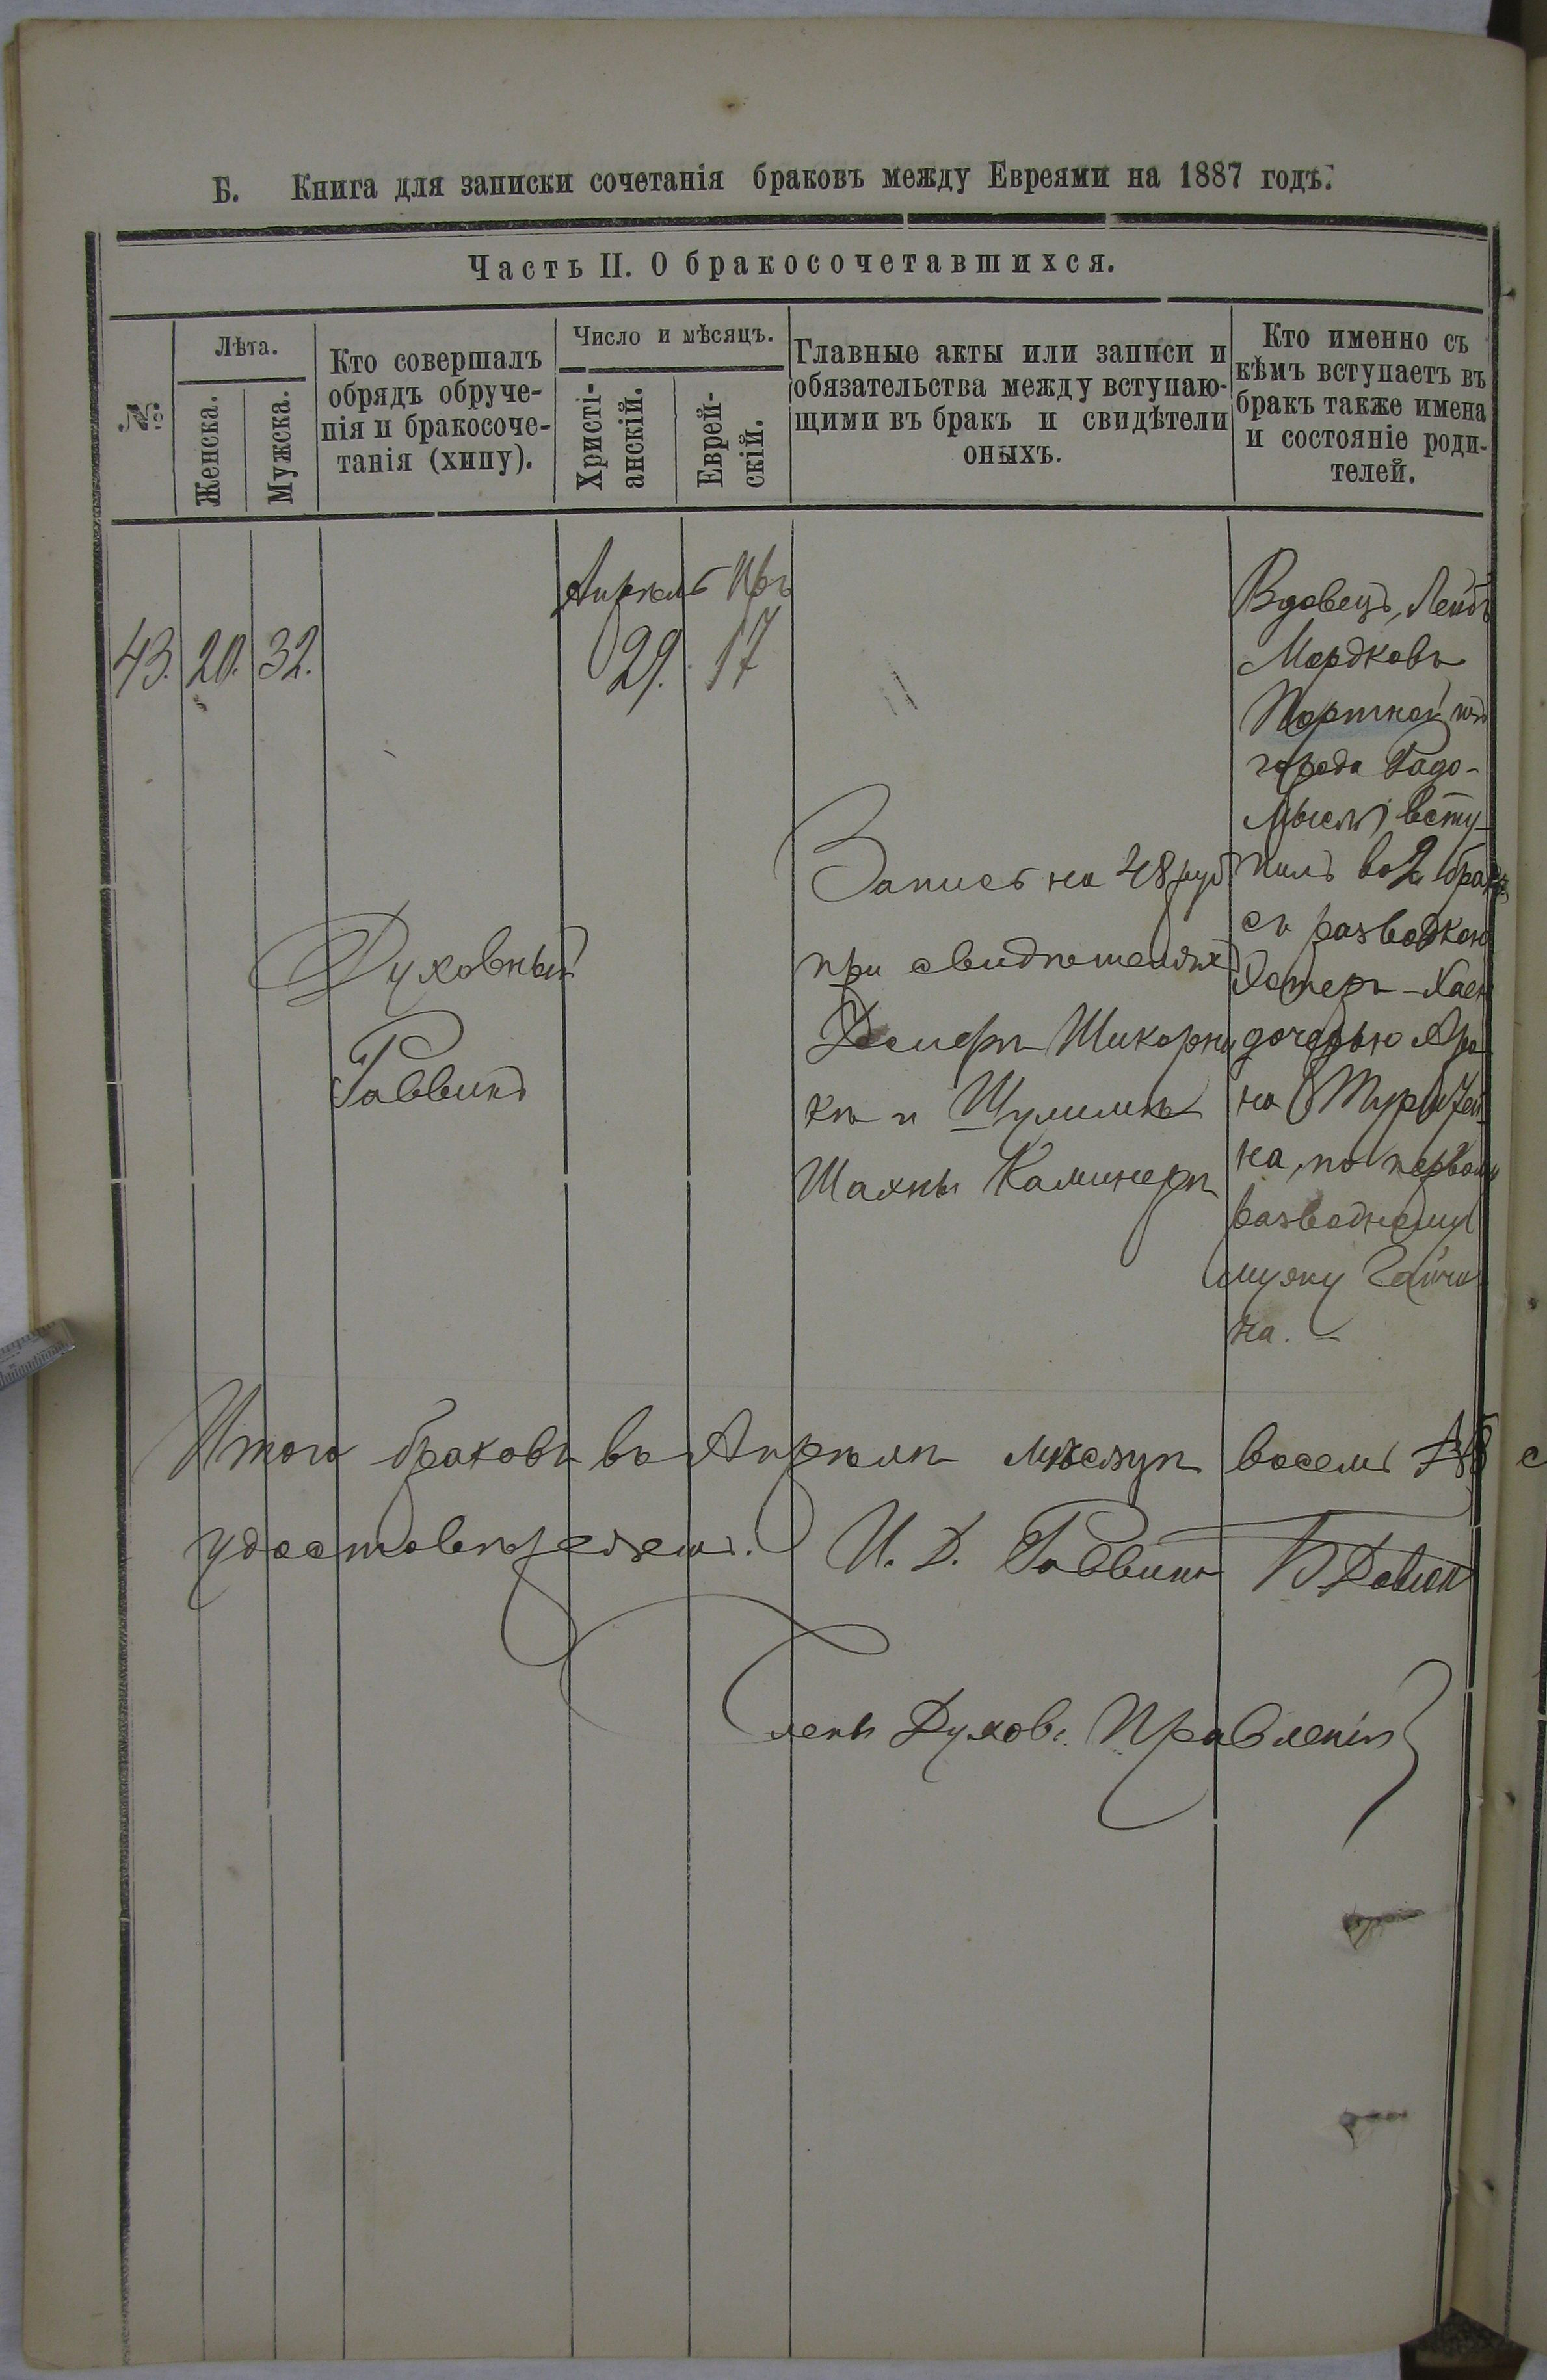 Б. Книга для записки сочетанія браковъ между Евреями на 1887 годъ.
Часть II. О бракосочетавшихся.
№
Лѣта.
Женска.
Мужска.
Кто совершалъ
обрядъ обруче-
нія и бракосоче-
танія (хипу).
Число и мѣсяцъ.
Христі-
анскій.
Еврей-
скій.
Главные акты или записи и
обязательства между вступаю-
щими въ бракъ и свидѣтели
оныхъ.
Кто именно съ
кѣмъ вступаетъ въ
бракъ также имена
и состояніе роди-
телей.
Апрель Іяръ
43. 20. 32. 29. 17
Духовный
Раввинъ
Запись на 48 руб.
при свидѣтеляхъ
Шикорни
кѣ и Шулимѣ
Шахны Каминеръ
Вдовецъ, Лейбъ
Мордковъ
Портной изъ
города Радо-
мысля всту-
пилъ во 2 бракъ
съ разводкою
Хаею
дочерью Аро
на
на, по первому
разводному
мужу
на.
Итого браковъ въ Апрелѣ мѣсяцѣ восемь №8 с
удостовѣряемъ. И. Д. Раввина
Члены Духов. Правленія